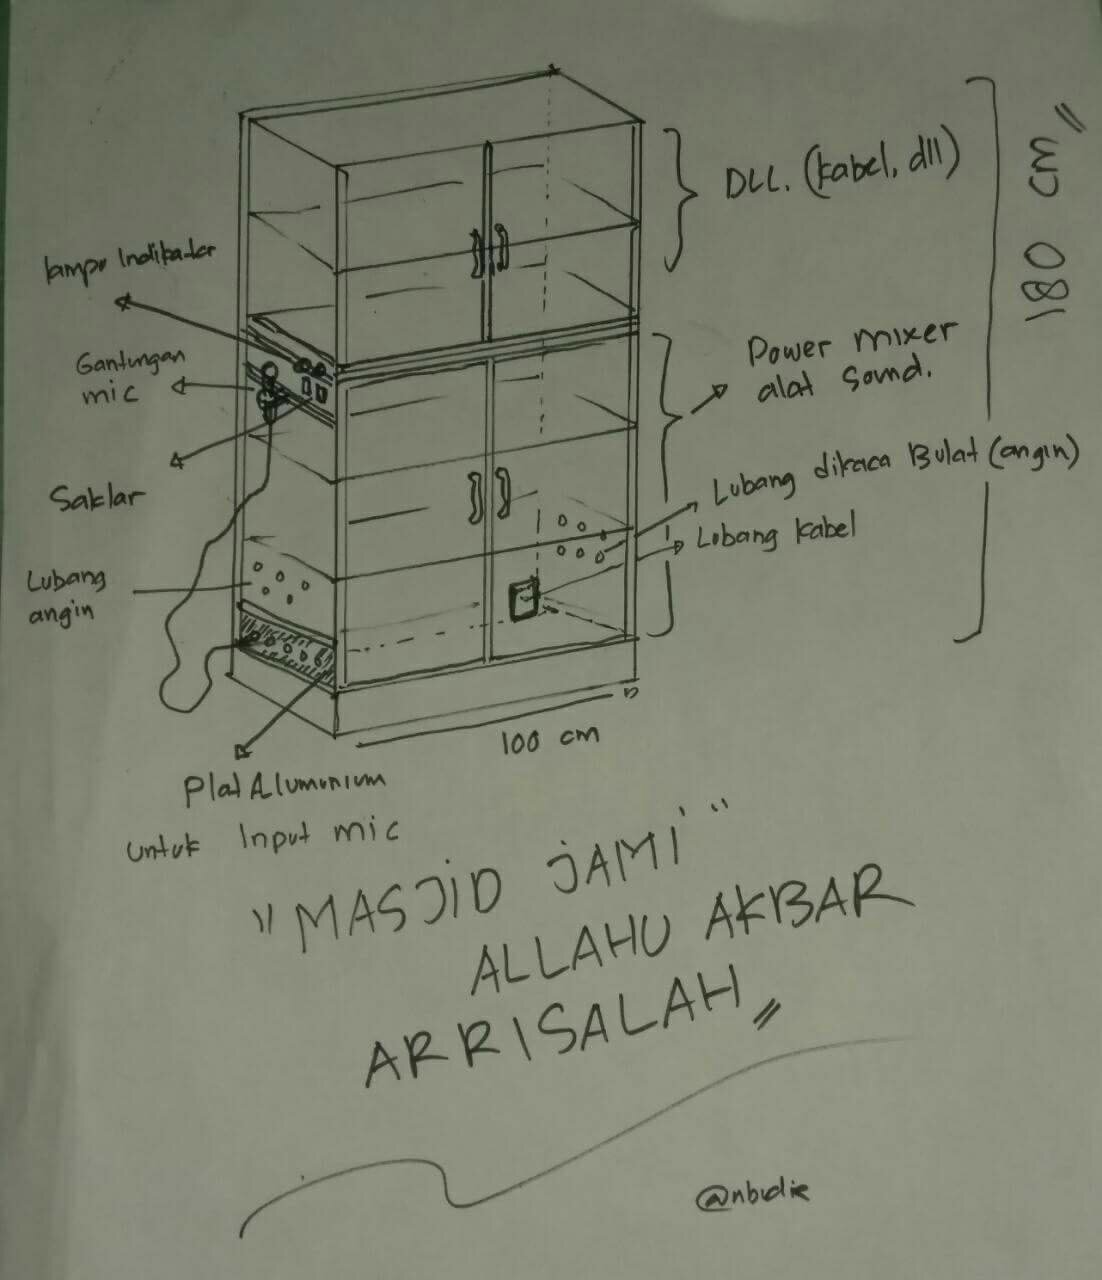 DLL. (kabel, dll)
180 cm
lampu Indikator
Gantungan
mic
Power mixer
alat sound.
Saklar
Lubang dikaca Bulat (angin)
Lobang kabel
Lubang
angin
100 cm
Plat Alumunium
untuk Input mic
"MASJID JAMI' "
ALLAHU AKBAR
ARRISALAH
@nbudie